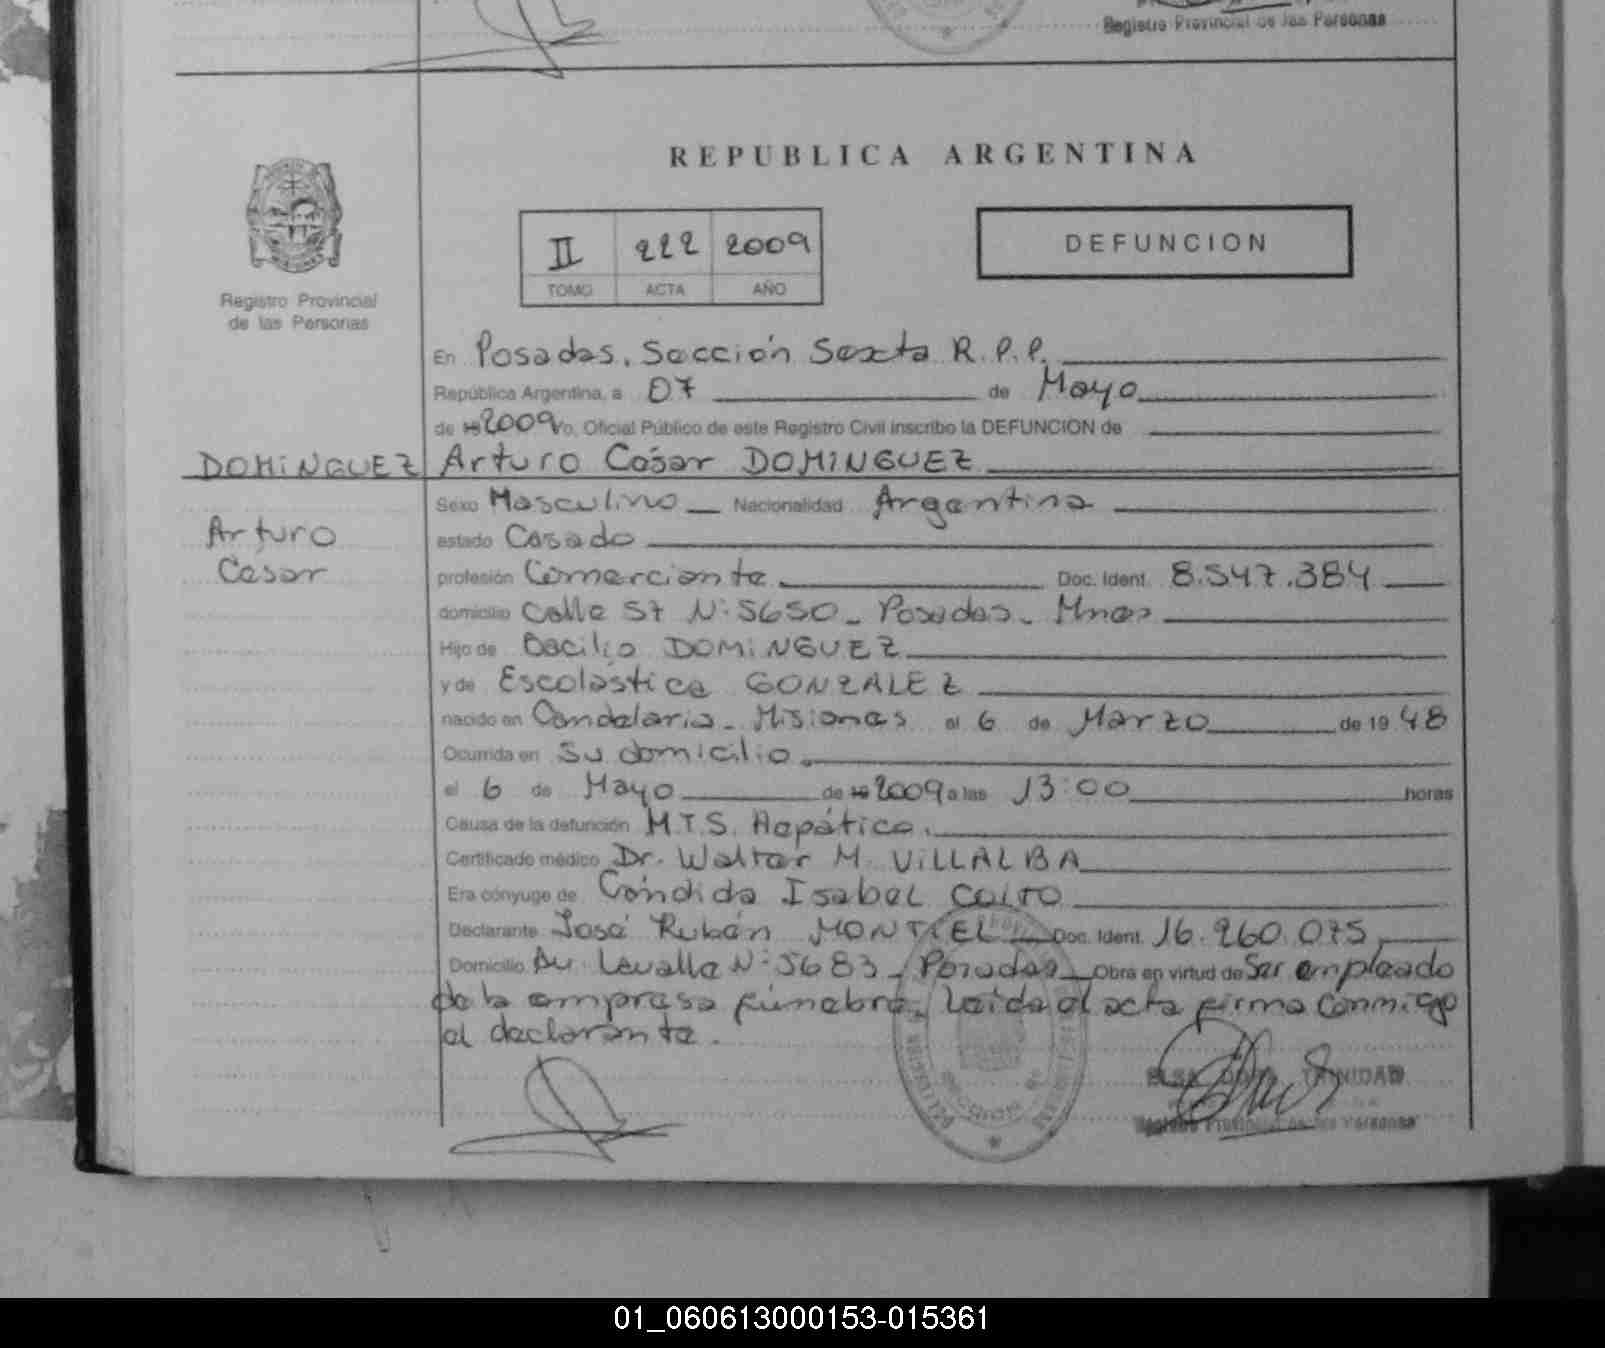 Registro Provincial de las Personas
REPUBLICA ARGENTINA
Registro Provincial
de las Personas
II 222 2009
TOMO ACTA AÑO
DEFUNCION
En Posadas, Sección Sexta R.P.P.
República Argentina, a 07 de Mayo
de 19 2009 Yo, Oficial Público de este Registro Civil inscribo la DEFUNCION de
DOMINGUEZ Arturo César DOMINGUEZ
Arturo
Cesar
Sexo Masculino Nacionalidad Argentina
estado Casado
profesión Comerciante Doc. Ident. 8.547.384
domicilio Calle 57 N: 5650 - Posadas - Mnes
Hijo de Bacilio DOMINGUEZ
y de Escolástica GONZALEZ
nacido en Candelaria - Misiones el 6 de Marzo de 19 48
Ocurrida en Su domicilio
el 6 de Mayo de 19 2009 a las 13:00 horas
Causa de la defunción M.T.S. Hepática.
Certificado médico Dr. Walter M. VILLALBA
Era cónyuge de Cándida Isabel
Declarante José Rubén MONTIEL Doc. Ident. 16.260.075,
Domicilio Av. Lavalle N: 5683 - Posadas Obra en virtud de Ser empleado
de la empresa fúnebre. Leída el acta firma conmigo
el declarante.
TRINIDAD
Registro Provincial de las Personas
01_060613000153-015361